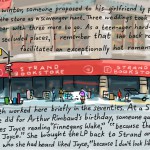 mitten, someone proposed to his girlfriend b
the store as a scavenger hunt. Three weddings took
with three more to come. As a teen-ager hunti
secluded places, I remember that row back ro
facilitated an exceptionally hot romantic
STRAND BOOKSTORE
STRAND BOOKSTORE
worked here briefly in the seventies. At a S
she did for Arthur Rimbaud's birthday, someone qu
es Joyce reading Finnegans Wake," "because th
Joyce." She bought the LP back to Strand an
who she had heard liked Joyce, "because I don't look li